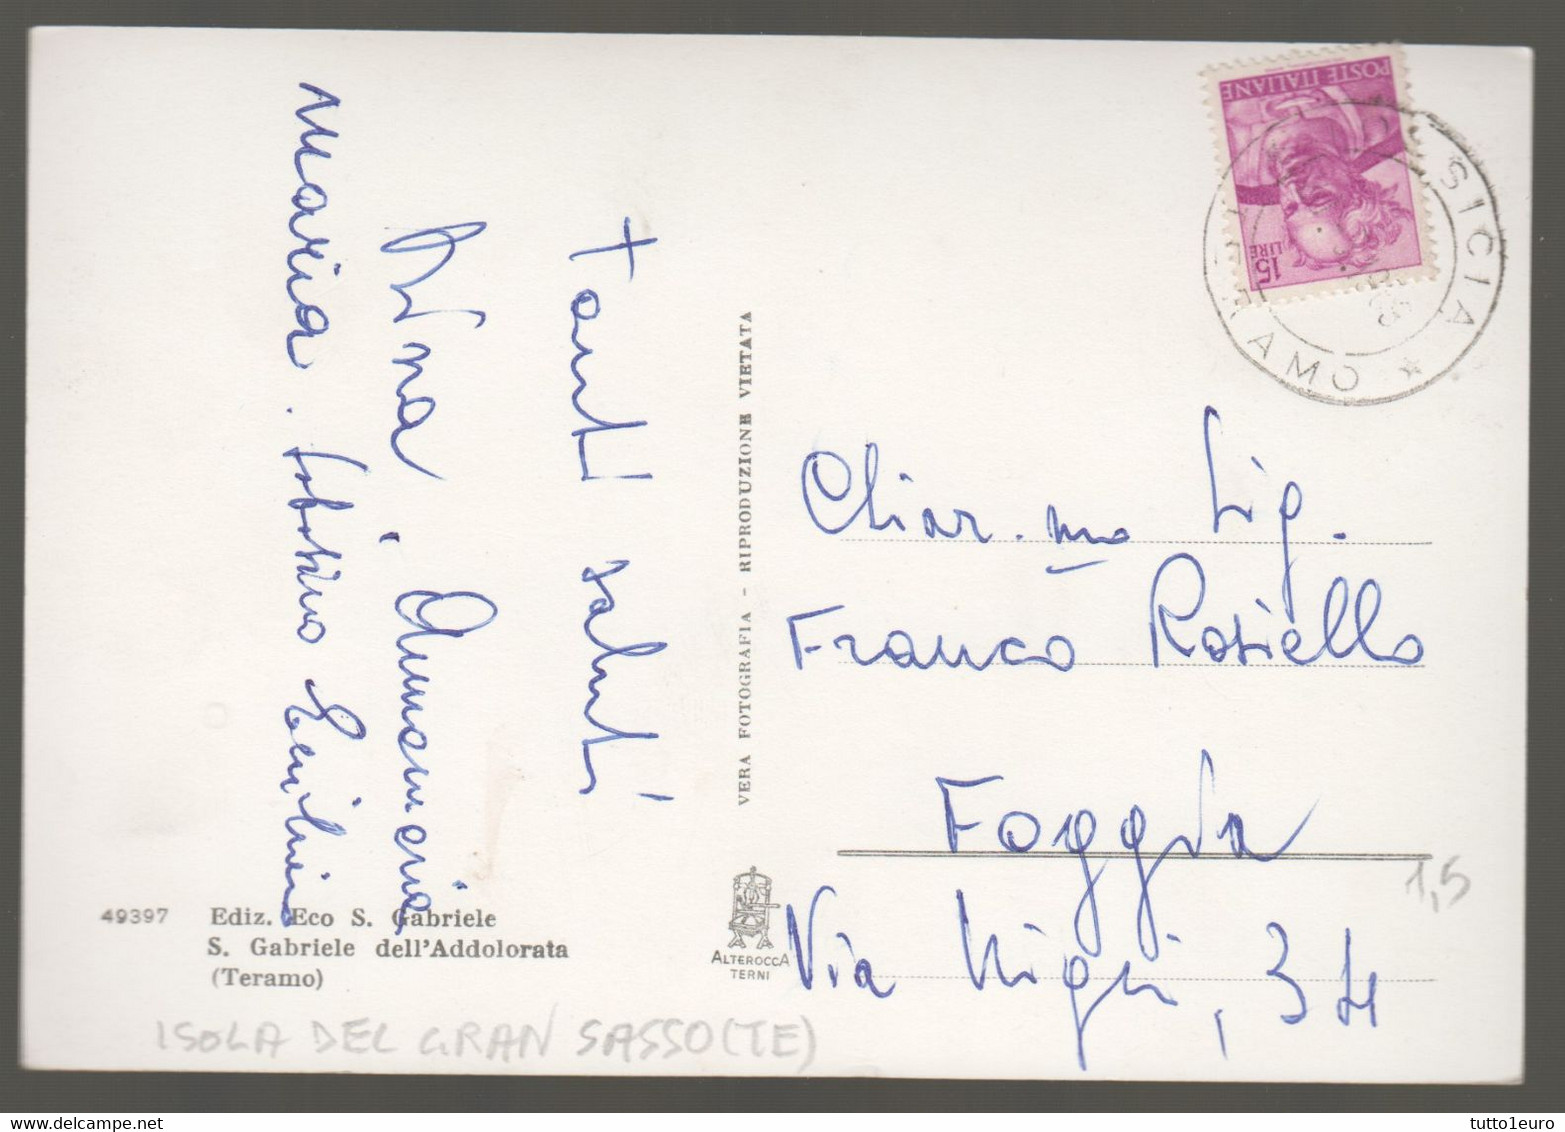 Tanti saluti
Dina, Annamaria
Maria. Sabatino Emilio
VERA FOTOGRAFIA - RIPRODUZIONE VIETATA
POSTE ITALIANE
15
LIRE
SICIA
TERAMO
Chiar.mo Sig.
Franco Rosiello
Foggia
Via Nigri, 34
1,5
49397 Ediz. Eco S. Gabriele
S. Gabriele dell'Addolorata
(Teramo)
ALTEROCCA
TERNI
ISOLA DEL GRAN SASSO (TE)
tutto1euro